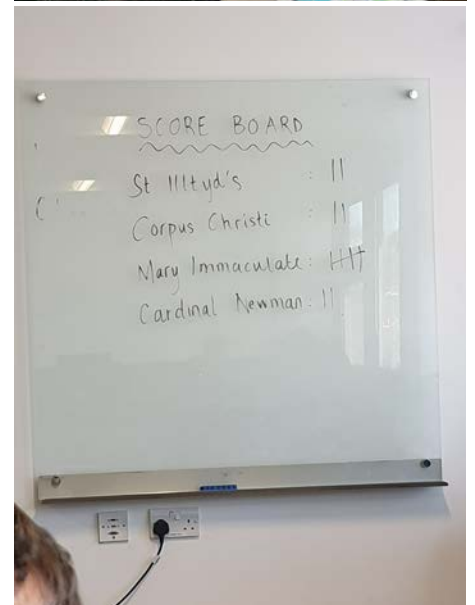 SCORE BOARD
St Illtyd's : ||
Corpus Christi : ||
Mary Immaculate: ||||
Cardinal Newman: ||